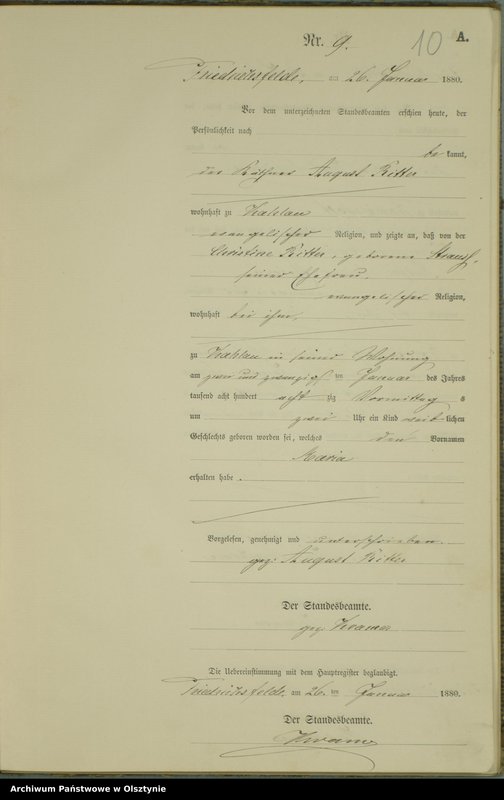 Nr. 9. 10 A.
Friedrichsfelde, am 26. Januar 1880.
Vor dem unterzeichneten Standesbeamten erschien heute, der
Persönlichkeit nach
be kannt,
der Käthner August Ritter
wohnhaft zu
evangelischer Religion, und zeigte an, daß von der
Christine Ritter, geborene
seiner Ehefrau,
evangelischer Religion,
wohnhaft bei ihm,
zu in seiner Wohnung
am zwei und zwanzigsten Januar des Jahres
tausend acht hundert acht zig Vormittag s
um zwei Uhr ein Kind weib lichen
Geschlechts geboren worden sei, welches den Vornamen
Maria
erhalten habe.
Vorgelesen, genehmigt und unterschrieben.
gez: August Ritter
Der Standesbeamte.
gez:
Die Uebereinstimmung mit dem Hauptregister beglaubigt.
Friedrichsfelde, am 26. ten Januar 1880.
Der Standesbeamte.
Archiwum Państwowe w Olsztynie